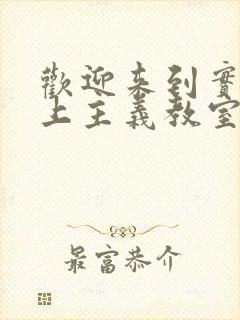 歡迎來到實
上主義教室
最富恭介